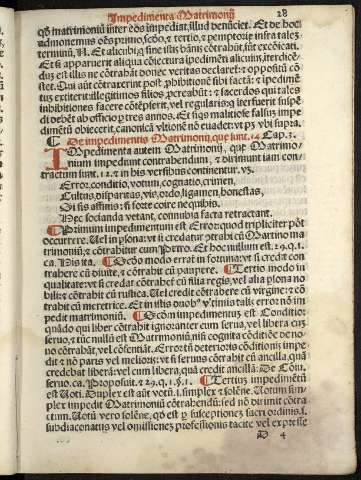 Impedimenta Matrimonij 28
qđ matrimoniũ inter eos impediat, illud denũciet. Et de hoc
admonemus oẽs primo, scďo, & tertio, & pemptorie infra talez
terminũ, N. Et alicubi; fine illis bãnis cõtrahãt, sũt excõicati.
Et si apparuerit aliqua cõiectura ipedimẽti alicuius, iterdicẽ-
dus est illis ne cõtrahãt donec veritas declaret: & oppositũ cõ-
stet. Qui aũt cõtraxerint post phibitionẽ sibi factã: & impedimẽ-
tus extiterit illegitimos filios, pcreabũt: & sacerdos qui tales
inhibitiones facere cõtẽpserit, vel regularis: q iterfuerit suspẽ-
di debẽt ab officio p tres annos. Et si qs malitiose falsuz impe-
dimẽtũ obiecerit, canonicã vltionẽ nõ euadet: vt ps vbi supra.
De impedimentis Matrimonij, que sunt. 14 Cap. 3.
Impedimenta autem Matrimonij, que Matrimo-
nium impediunt contrahendum, & dirimunt iam con-
tractum sunt. 12. & in his versibus continentur. vz.
Error, conditio, votum, cognatio, crimen,
Cultus, disparitas, vis, ordo, ligamen, honestas,
Si sis affinis: si forte coire nequibis.
Hec socianda vetant, connubia facta retractant.
Primum impedimentum est Error: quod tripliciter põt
occurrere. Uel in psona: vt si credatur ptrahi cũ Martino ma-
trimoniũ, & cõtrahitur cum Petro. Et hoc nullum est. 29. q. 1.
ca. His ita. Scďo modo errat in fortuna: vt si credit con-
trahere cũ diuite, & cõtrahit cũ paupere. Tertio modo in
qualitate: vt si credat cõtraheř cũ filia regis, vel alia plona no
bili: & cõtrahit cũ rustica. Uel credit cõtrabere cũ virgine: & cõ
trahit cũ meretrice. Et in istis duob9 vltimis talis error nõ im
pedit matrimoniũ. Scďm impedimentum est Conditio:
quãdo qui liber cõtrahit ignoranter cum serua, vel libera cũ
seruo, & tũc nullũ est Matrimoniũ, nisi cognita cõditiõe de no-
uo cõtrahãt, vel cõsentiãt. Error tñ deterioris cõditionis impe
dit & nõ paris vel melioris: vt si seruus cõtrahit cũ ancilla, quã
credebat liberã: vel cum libera, quã credit ancillã: De Cõiu.
seruo. ca. Proposuit. & 29. q. 1. §. 1. Tertius impedimẽtũ
est Uoti. Duplex est aũt votũ. s. simplex & solẽne. Uotum sim-
plex impedit Matrimoniũ cõtrahendũ: sed nõ dirimit cõtra
ctum. Uotũ vero solẽne, qđ est p susceptiones sacri ordinis. s.
subdiaconatus vel omissiones professionis tacite vel expresse
D 4